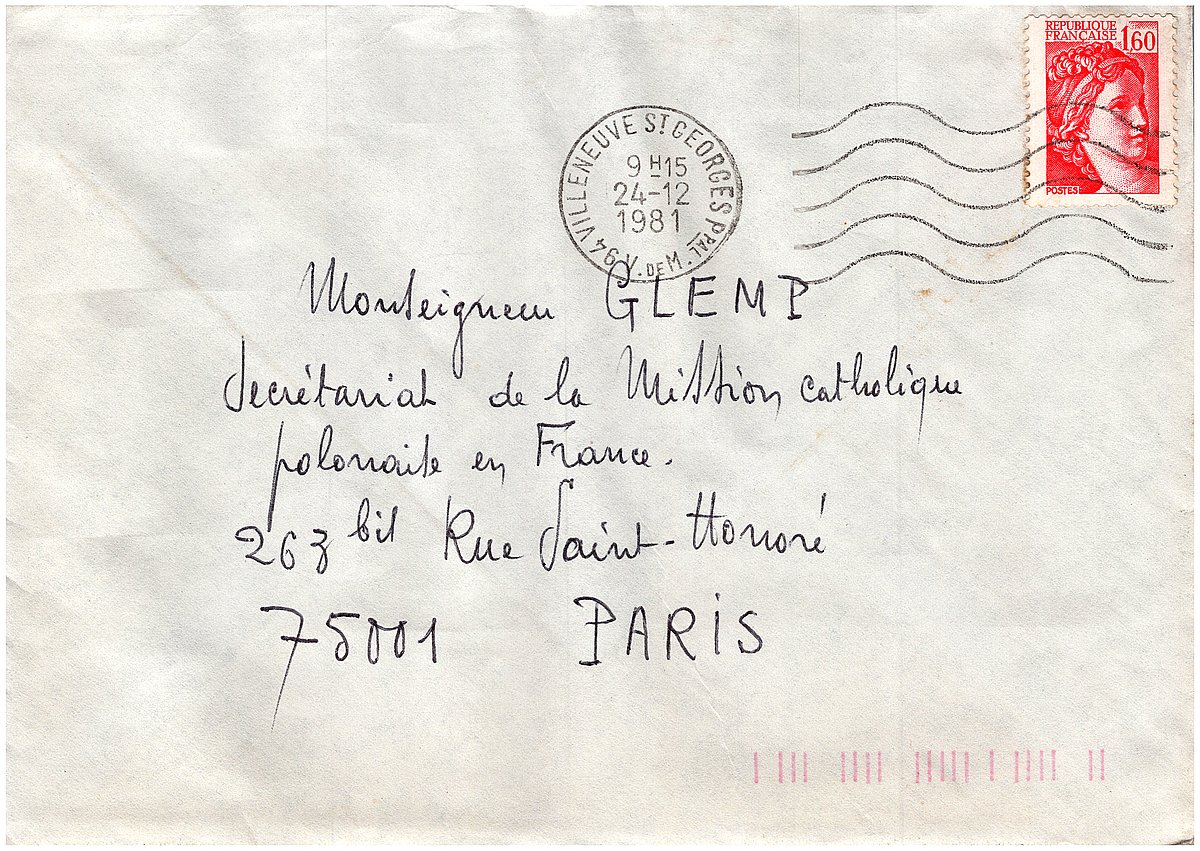 REPUBLIQUE
FRANÇAISE
1,60
POSTES
94 VILLENEUVE ST GEORGES PPAL
V. DE M.
9 H 15
24-12
1981
Monseigneur GLEMP
Secrétariat de la Mission catholique
polonaise en France.
263 bis Rue Saint-Honoré
75001 PARIS